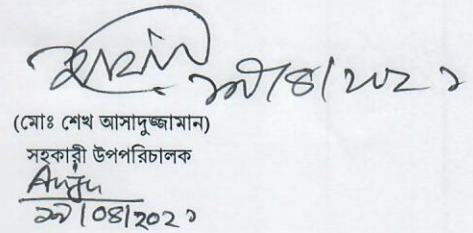 ১৯/৪/২০২১
(মোঃ শেখ আসাদুজ্জামান)
সহকারী উপপরিচালক
১৯/০৪/২০২১